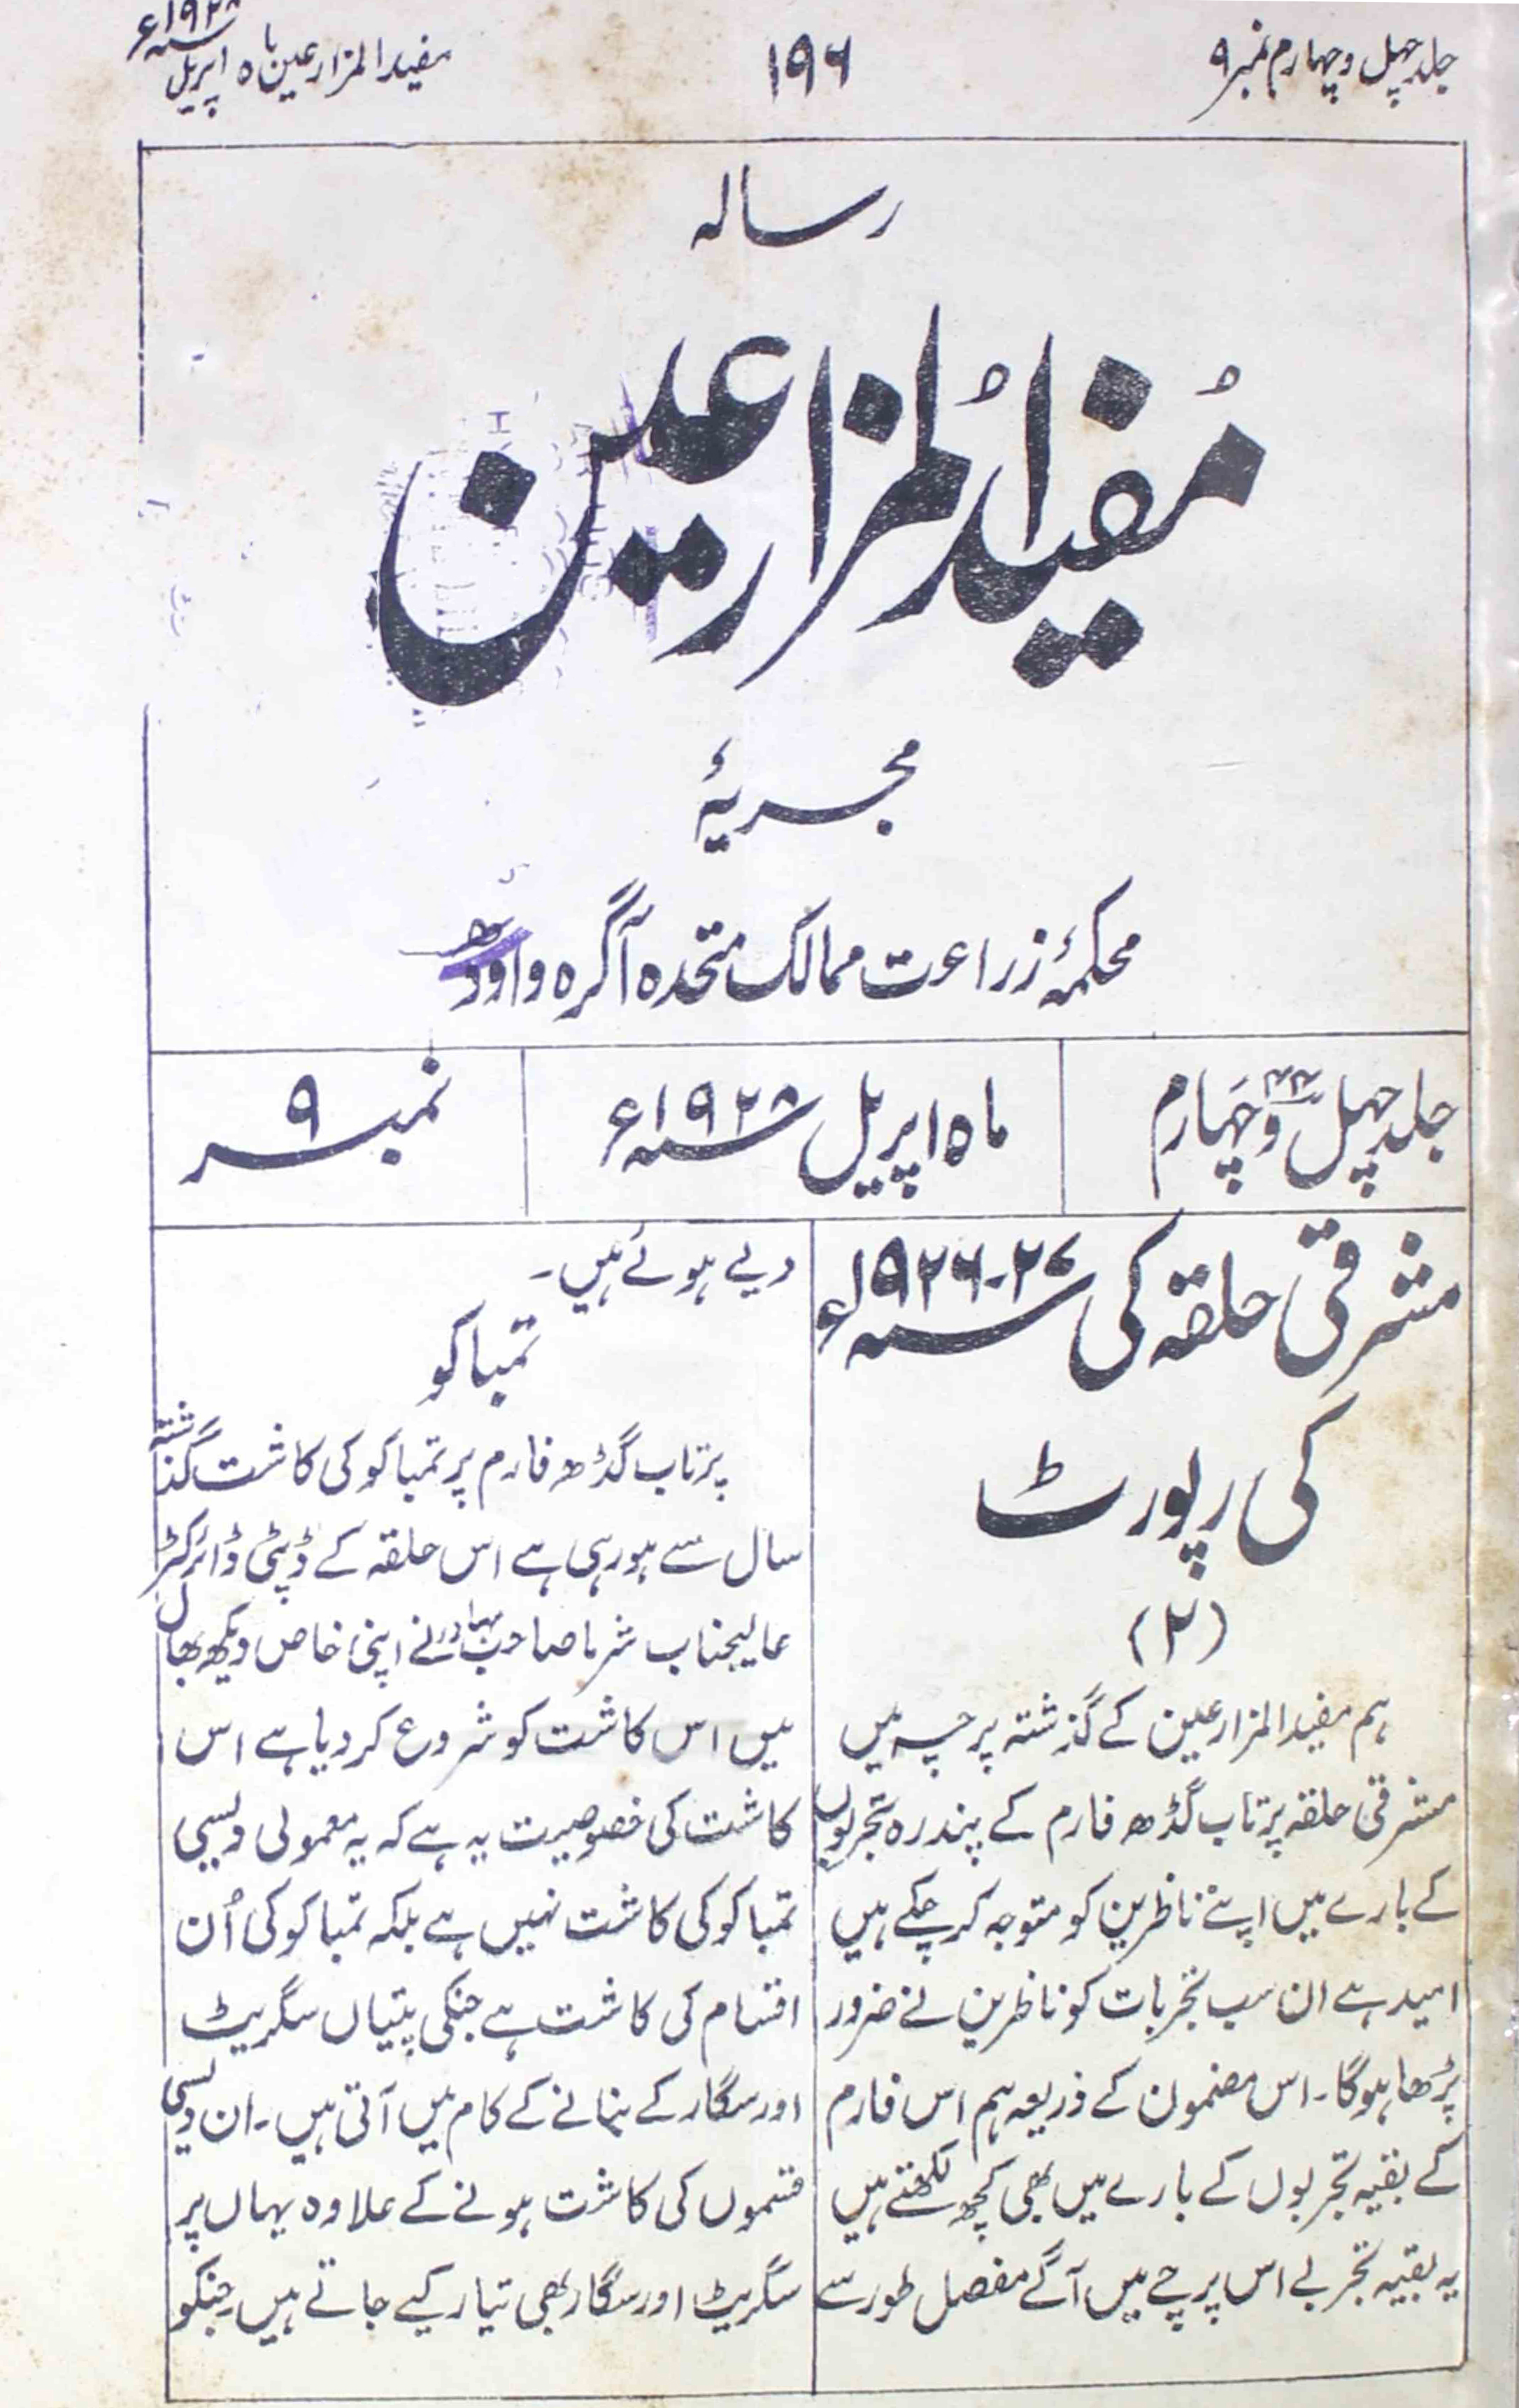 جلد چہل و چہارم نمبر ۹
۱۹۶
مفید المزارعین ماہ اپریل سنہ ۱۹۲۸ء
رسالہ
مُفیدُ المزارعین
مجریۂ
محکمۂ زراعت ممالک متحدہ آگرہ و اودھ
جلد چہل و چہارم ۴۴
ماہ اپریل سنہ ۱۹۲۸ء
نمبر ۹
مشرقی حلقہ کی سنہ ۲۷-۱۹۲۶ء
کی رپورٹ
(۲)
ہم مفید المزارعین کے گذشتہ پرچہ میں
مشرقی حلقہ پرتاب گڈھ فارم کے پندرہ تجربوں
کے بارے میں اپنے ناظرین کو متوجہ کر چکے ہیں
امید ہے ان سب تجربات کو ناظرین نے ضرور
پڑھا ہوگا۔ اس مضمون کے ذریعہ ہم اس فارم
کے بقیہ تجربوں کے بارے میں بھی کچھ لکھتے ہیں
یہ بقیہ تجربے اس پرچے میں آگے مفصل طور سے
دیے ہوئے ہیں۔
تمباکو
پرتاب گڈھ فارم پر تمباکو کی کاشت گذشتہ
سال سے ہو رہی ہے اس حلقہ کے ڈپٹی ڈائرکٹر
عالیجناب شرما صاحب بہادر نے اپنی خاص دیکھ بھال
میں اس کاشت کو شروع کر دیا ہے اس
کاشت کی خصوصیت یہ ہے کہ یہ معمولی دیسی
تمباکو کی کاشت نہیں ہے بلکہ تمباکو کی اُن
اقسام کی کاشت ہے جنکی پتیاں سگریٹ
اور سگار کے بنانے کے کام میں آتی ہیں۔ ان دیسی
قسموں کی کاشت ہونے کے علاوہ یہاں پر
سگریٹ اور سگار بھی تیار کیے جاتے ہیں جنکو